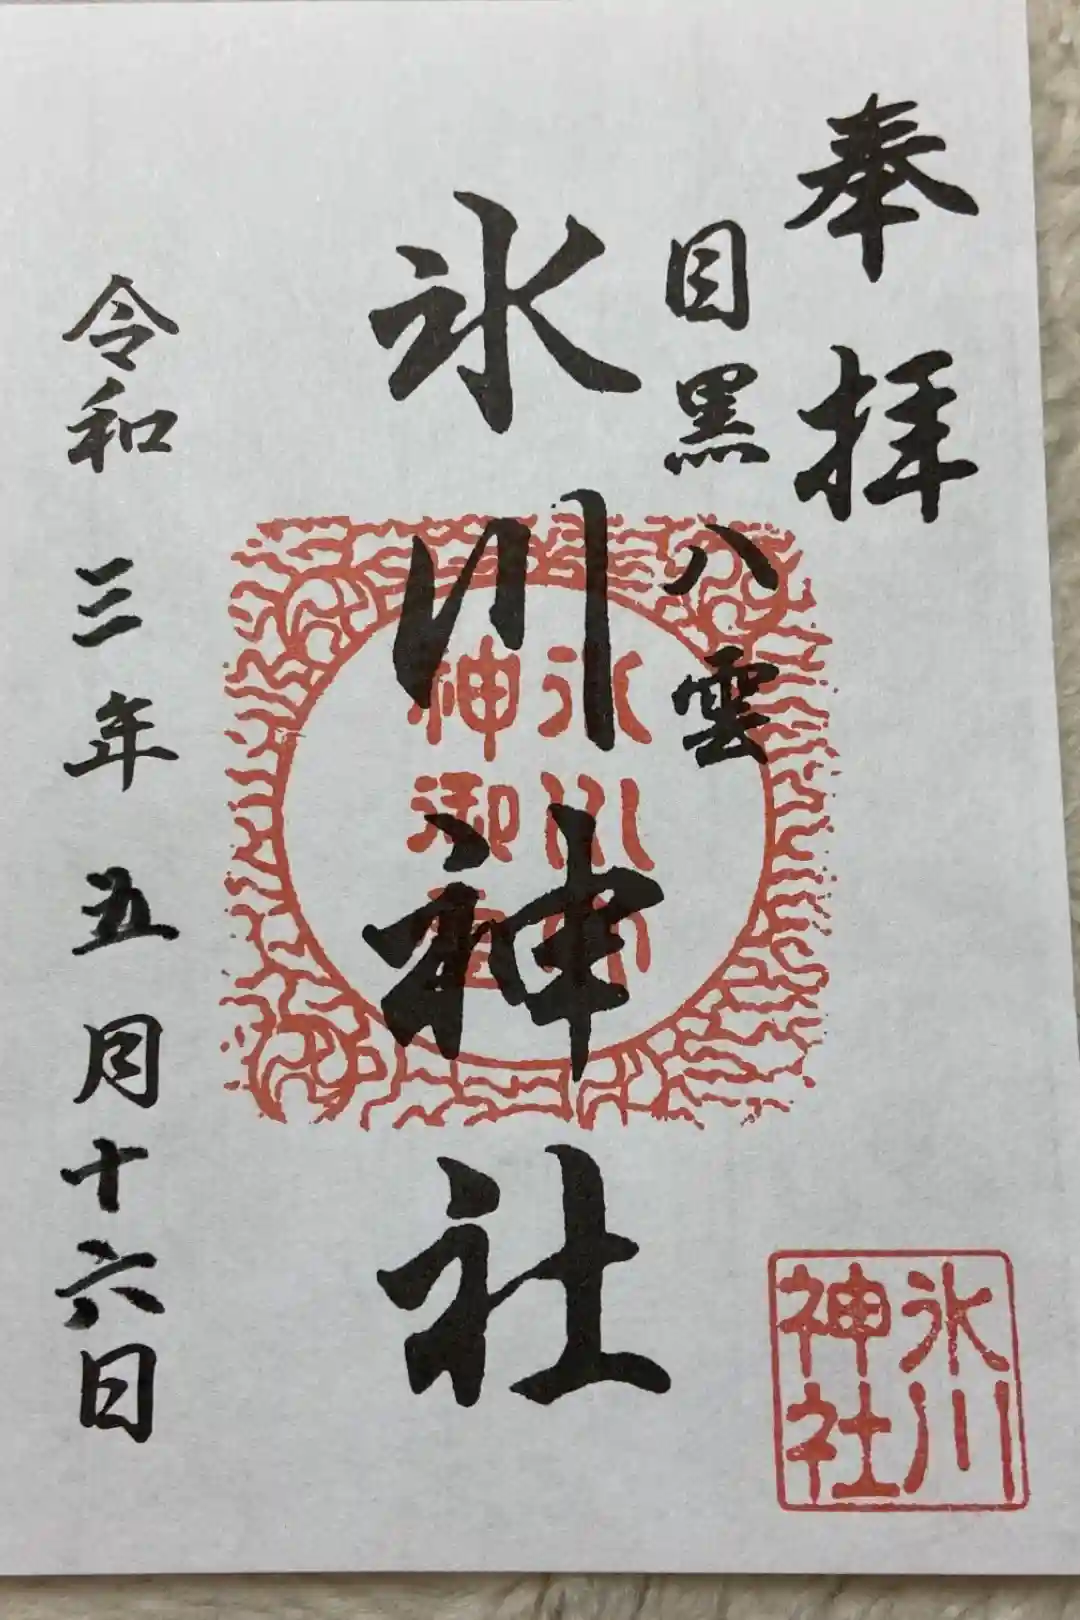 奉拝
目黒八雲
氷川神社
令和三年五月十六日
氷川
神社
氷川
神御